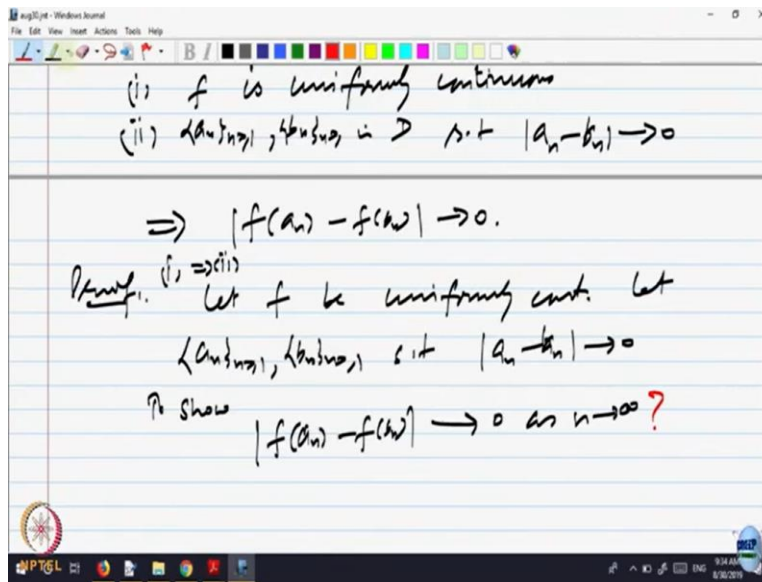 aug30.jnt - Windows Journal
File Edit View Insert Actions Tools Help
(i) f is uniformly continuous
(ii) {an}n≥1, {bn}n≥1 in D s.t |an - bn| → 0
⇒ |f(an) - f(bn)| → 0.
Proof. (i) ⇒ (ii)
Let f be uniformly cont. Let
{an}n≥1, {bn}n≥1 s.t |an - bn| → 0
To show
|f(an) - f(bn)| → 0 as n → ∞ ?
NPTEL
ENG
9:34 AM
8/30/2019